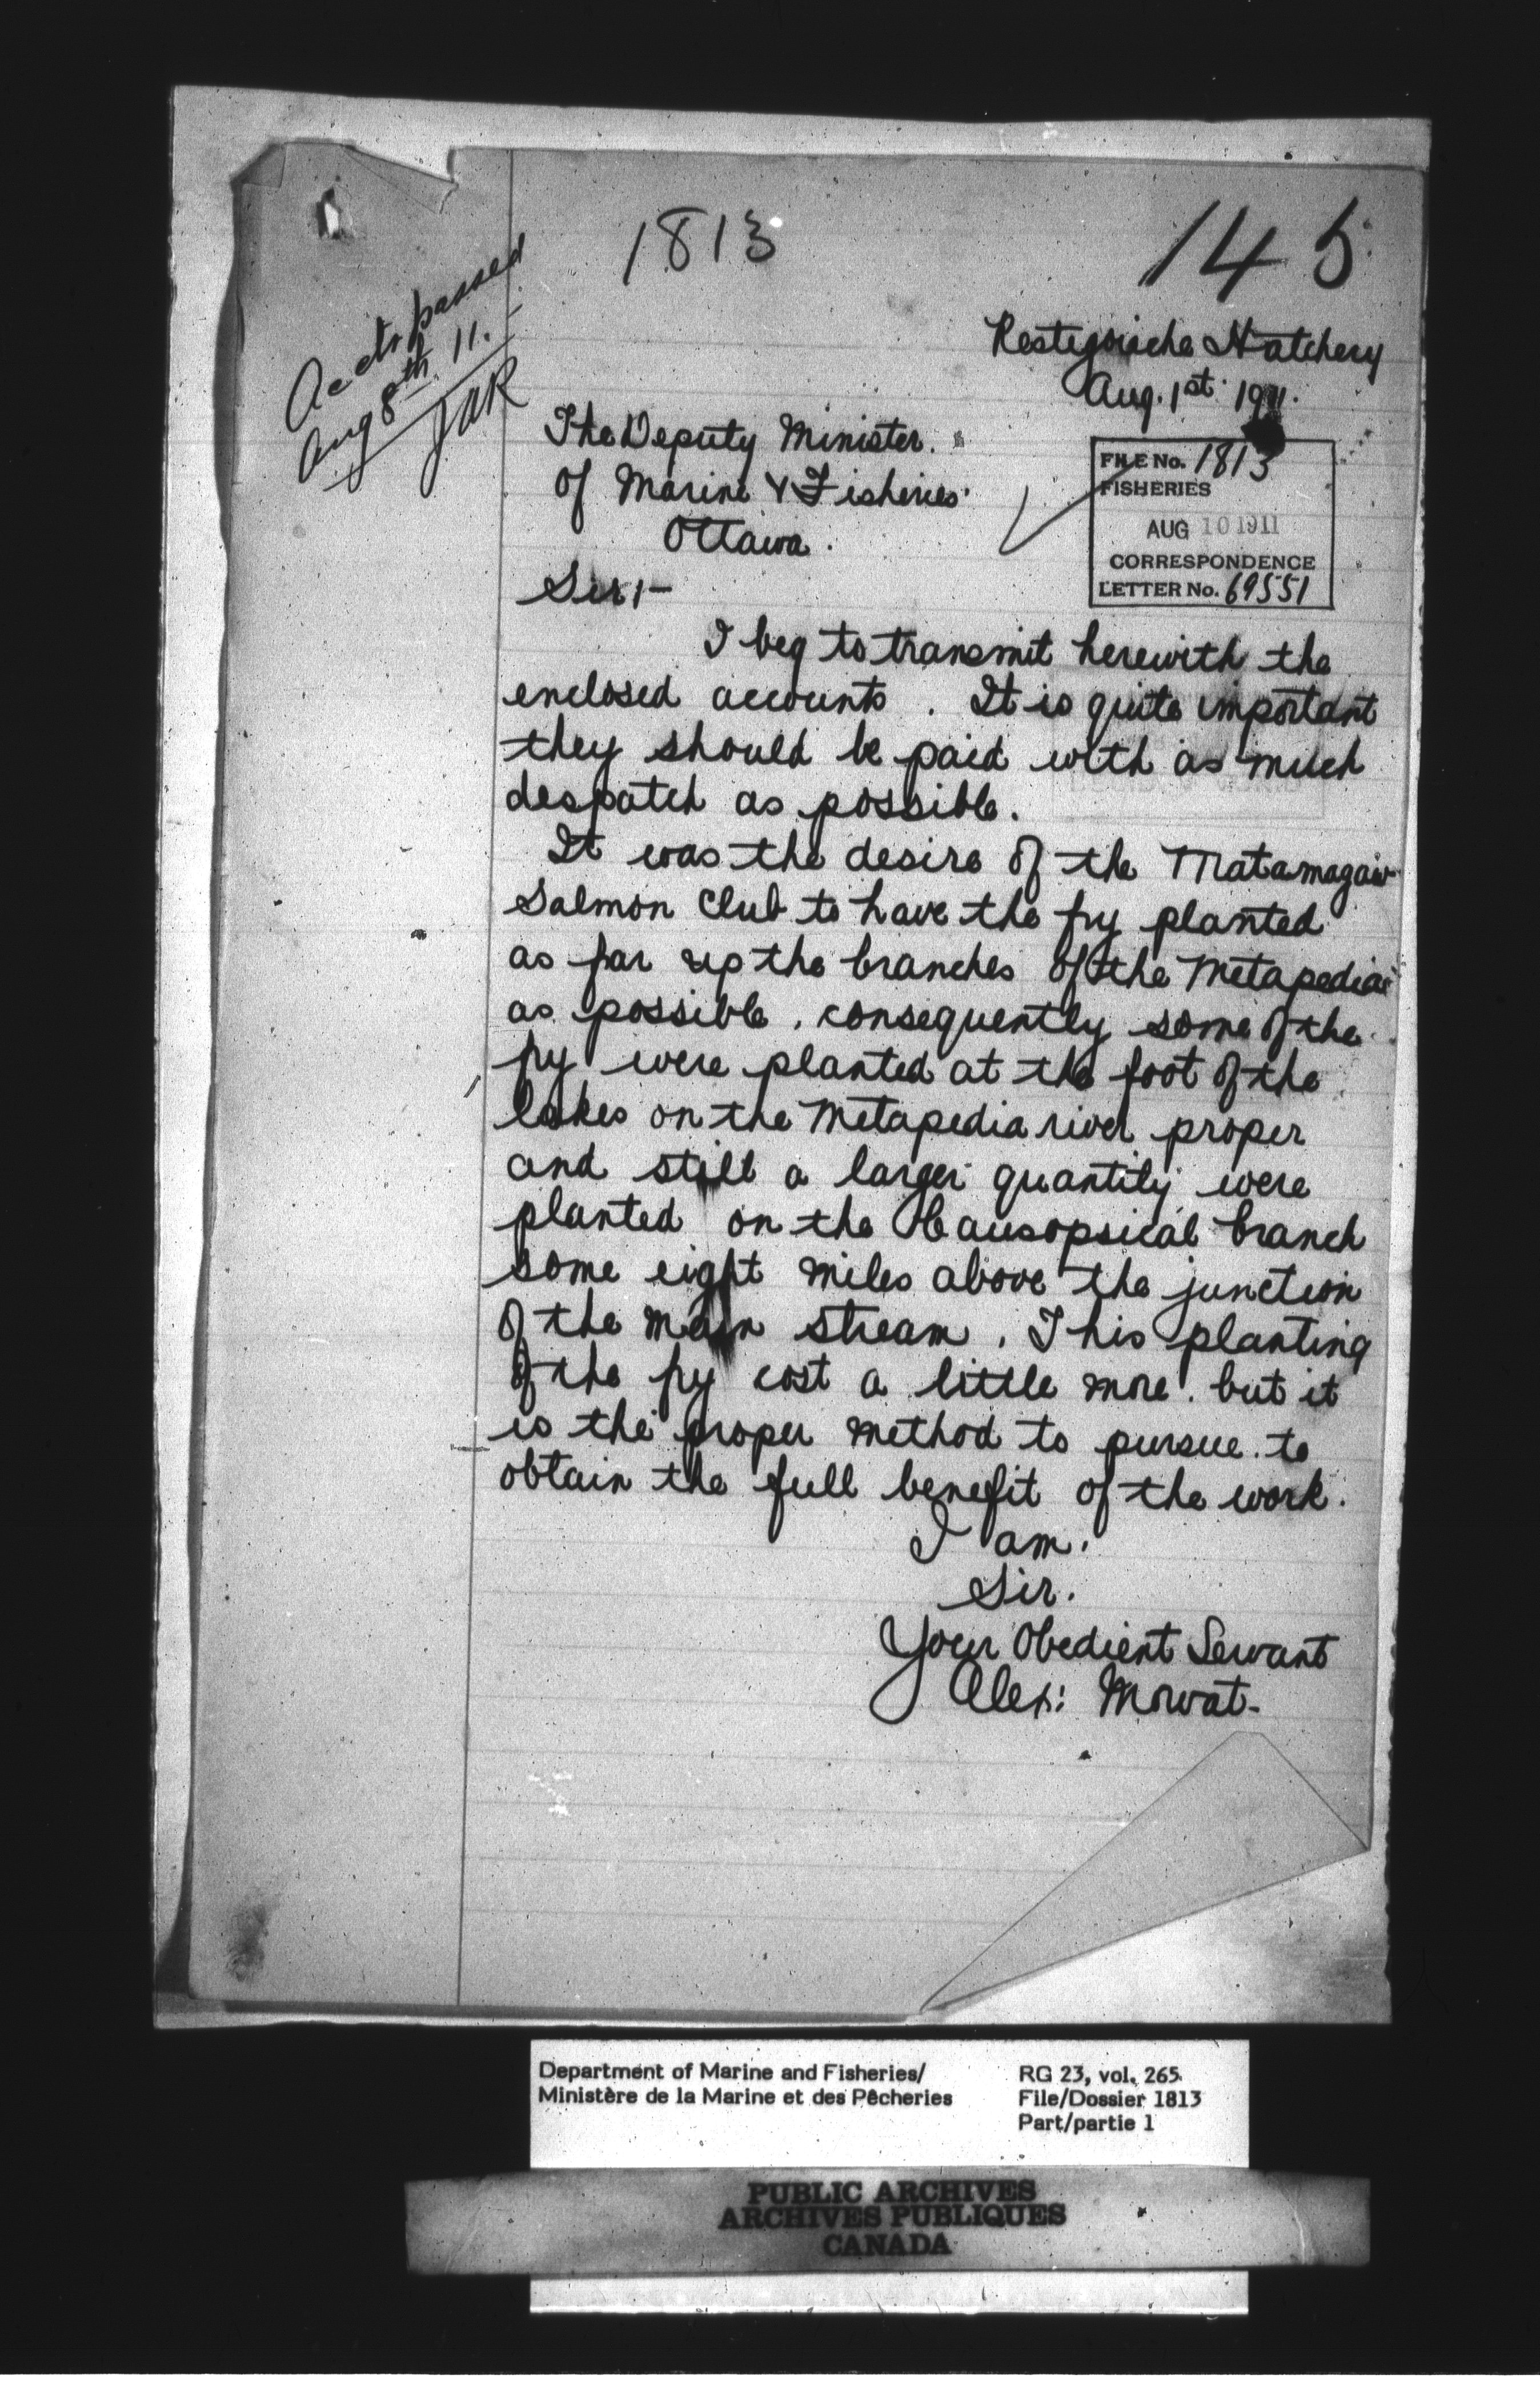 1813
145
Accts passed
Aug 8th 11.
JAR
Restigouche Hatchery
Aug. 1st 1911.
The Deputy Minister.
Of Marine & Fisheries
Ottawa.
Sir:-
FILE No. 1813
FISHERIES
AUG 10 1911
CORRESPONDENCE
LETTER No. 69551
I beg to transmit herewith the
enclosed accounts. It is quite important
they should be paid with as much
despatch as possible.
It was the desire of the Matamagaw
Salmon Club to have the fry planted
as far up the branches of the Metapedia
as possible, consequently some of the
fry were planted at the foot of the
lakes on the Metapedia river proper
and still a larger quantity were
planted on the Causopsical branch
some eight miles above the junction
of the main stream. This planting
of the fry cost a little more. but it
is the proper method to pursue to
obtain the full benefit of the work.
I am.
Sir.
Your Obedient Servant
Alex: Mowat-
Department of Marine and Fisheries/
Ministère de la Marine et des Pêcheries
RG 23, vol. 265
File/Dossier 1813
Part/partie 1
PUBLIC ARCHIVES
ARCHIVES PUBLIQUES
CANADA